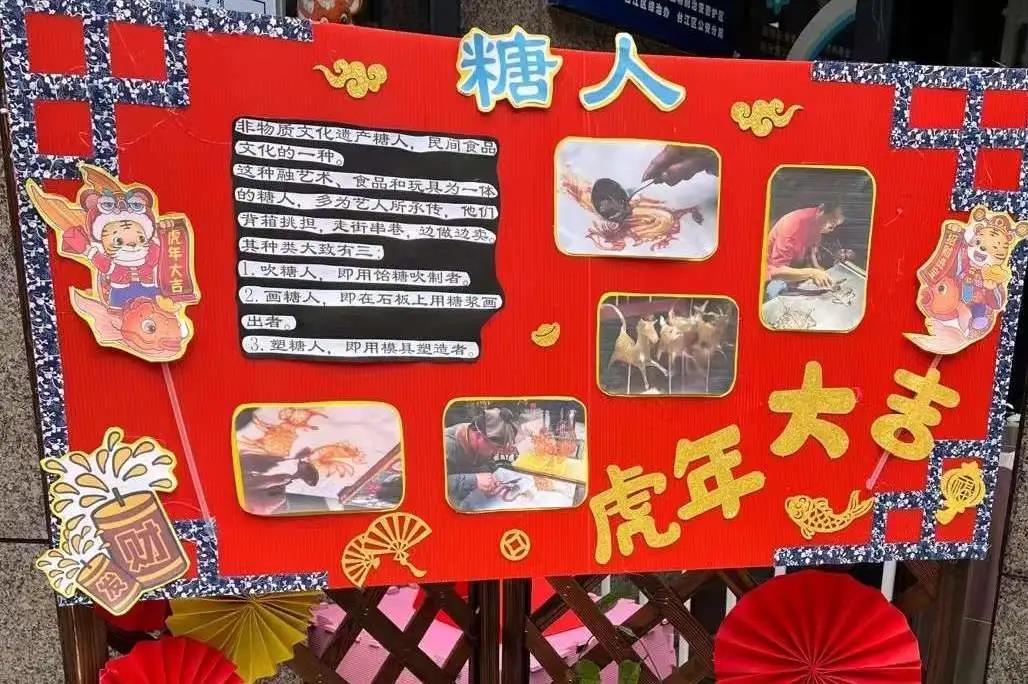 台江区综治办 台江区公安分局
糖人
非物质文化遗产糖人，民间食品
文化的一种。
这种融艺术、食品和玩具为一体
的糖人，多为艺人所承传，他们
背箱挑担，走街串巷，边做边卖。
其种类大致有三：
1. 吹糖人，即用饴糖吹制者。
2. 画糖人，即在石板上用糖浆画
出者。
3. 塑糖人，即用模具塑造者。
虎年大吉
招财进宝
虎年大吉
福
发财